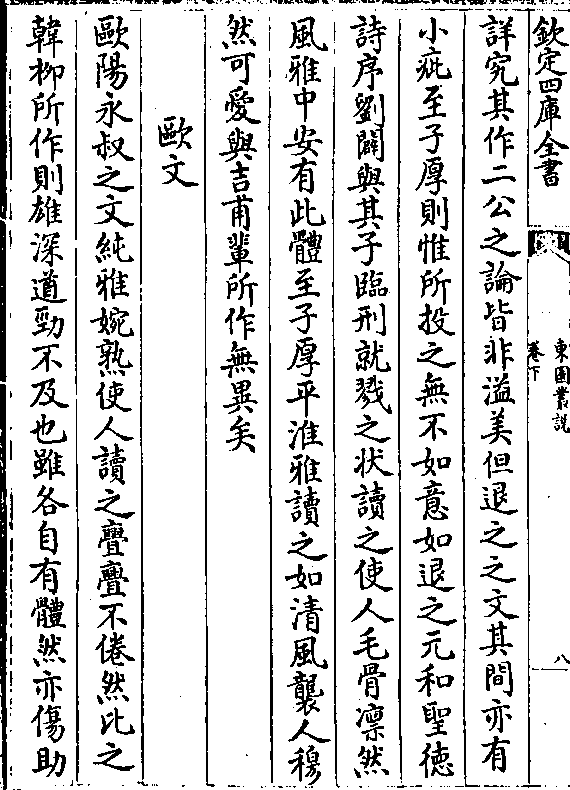 欽定四庫全書
東園叢說
卷下
八
詳究其作二公之論皆非溢美但退之之文其間亦有
小疵至子厚則惟所投之無不如意如退之元和聖徳
詩序劉闢與其子臨刑就戮之状讀之使人毛骨凛然
風雅中安有此體至子厚平淮雅讀之如清風襲人穆
然可愛與吉甫輩所作無異矣
歐文
歐陽永叔之文純雅婉熟使人讀之亹亹不倦然比之
韓柳所作則雄深遒勁不及也雖各自有體然亦傷助